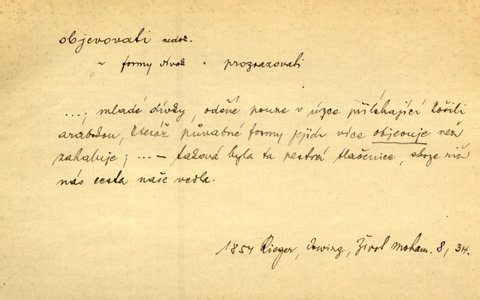 objevovati nedok.
~ formy dívek · prozrazovati
...; mladé dívky, oděné pouze v úzce přiléhající košili
arabskou, kteráž půvabné formy jejich více objevuje než
zahaluje; ... – taková byla ta pestrá tlačenice, skrze niž
nás cesta naše vedla.
1854 Rieger, Irwing, Život Moham. 8, 34.